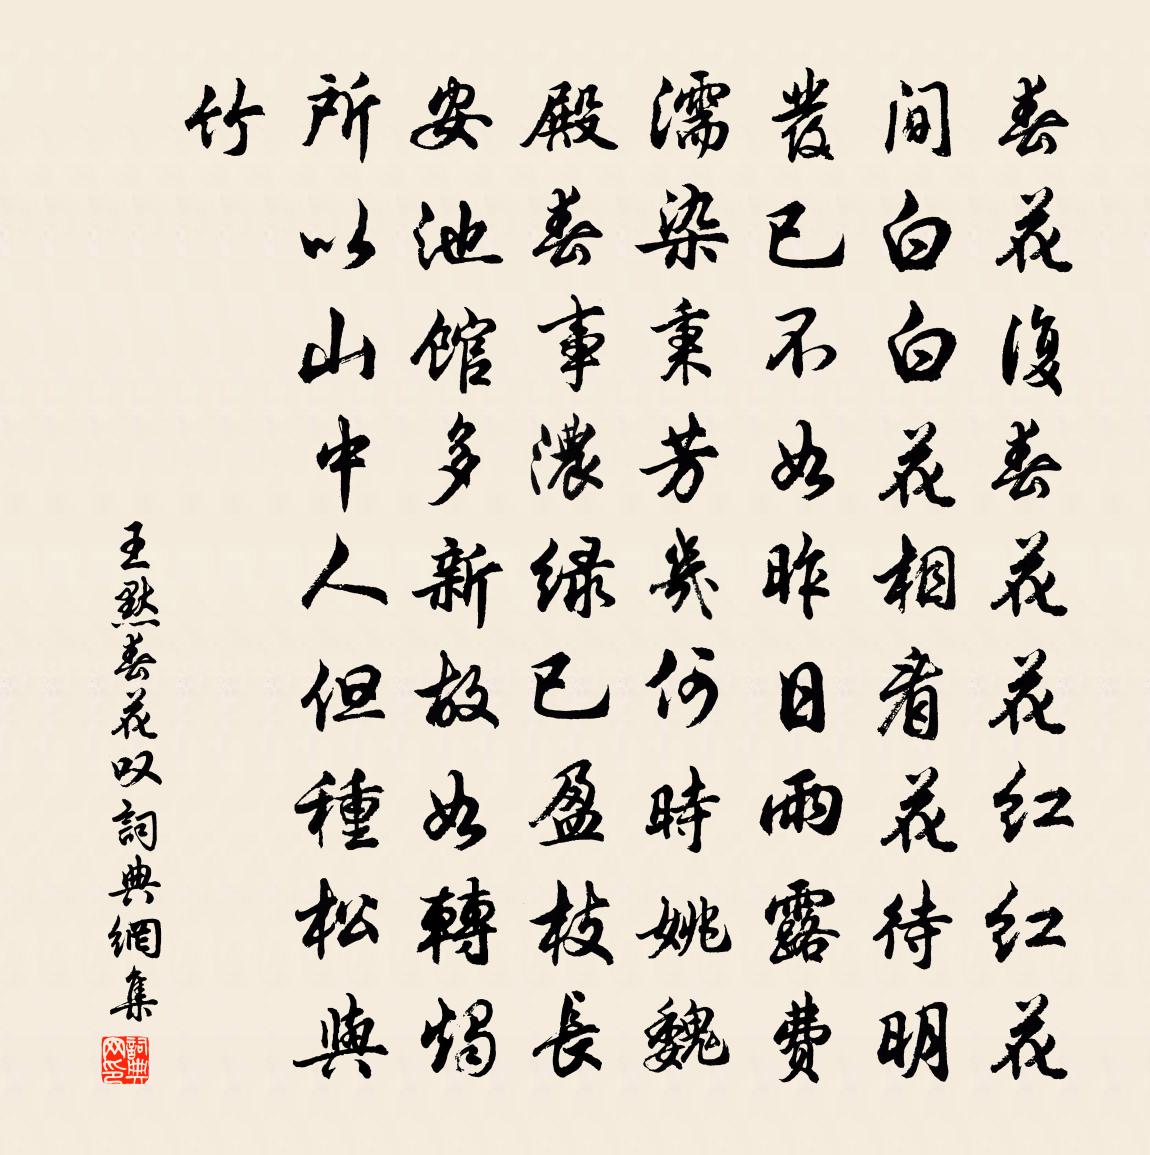 春花復春花花红红花
间白白花相看花待明
發已不如昨日雨露費
濡染秉芳幾何時姚魏
殿春事濃绿已盈枝長
安池馆多新故如轉燭
所以山中人但種松與
竹
王默春花叹詞典網集
詞典网印